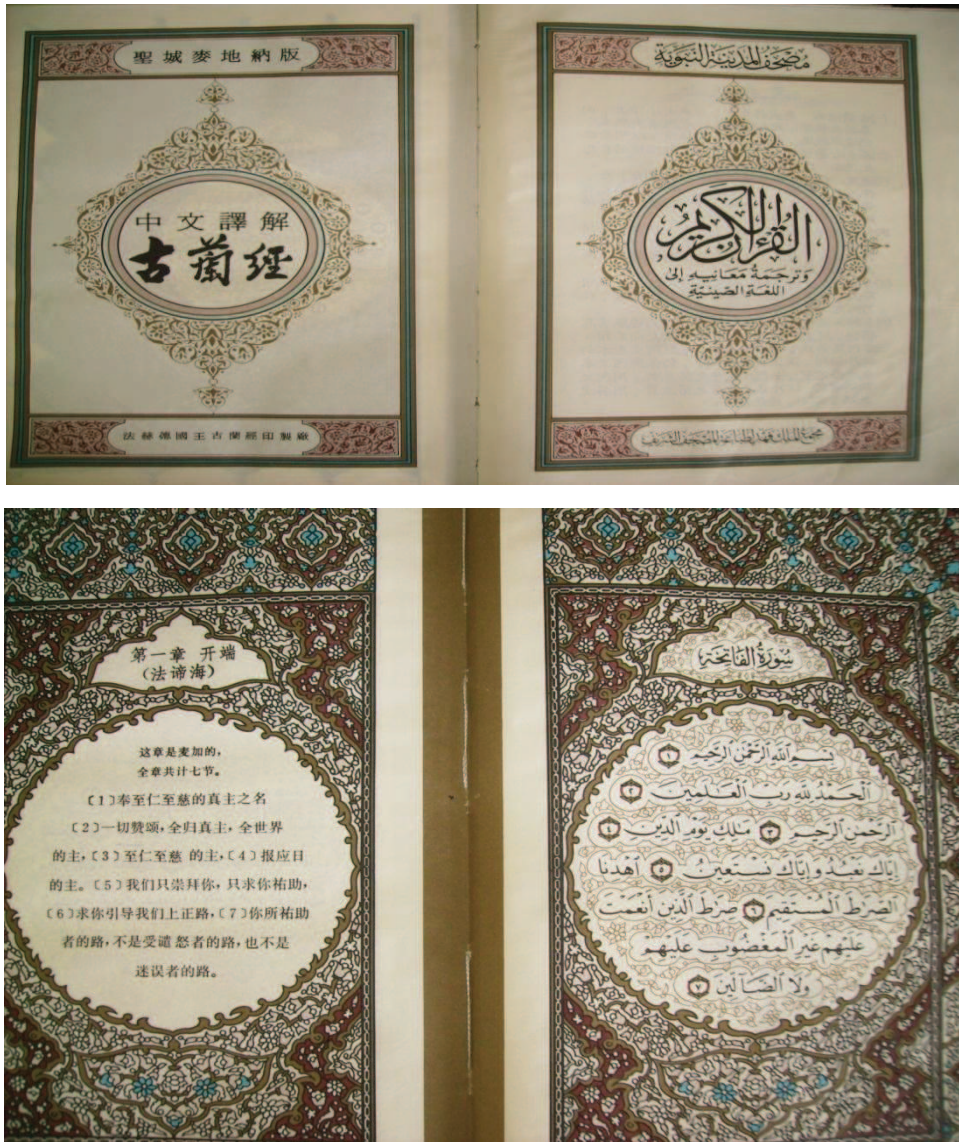 聖城麥地納版
中文譯解
古蘭經
法赫德國王古蘭經印製廠
مصحف المدينة النبوية
القرءان الكريم
وترجمة معانيه إلى
اللغة الصينية
مجمع الملك فهد لطباعة المصحف الشريف
第一章 开端
(法谛海)
这章是麦加的,
全章共计七节。
〔1〕奉至仁至慈的真主之名
〔2〕一切赞颂,全归真主,全世界
的主,〔3〕至仁至慈 的主,〔4〕报应日
的主。〔5〕我们只崇拜你,只求你祐助,
〔6〕求你引导我们上正路,〔7〕你所祐助
者的路,不是受谴 怒者的路,也不是
迷误者的路。
سورة الفاتحة
بسم الله الرحمن الرحيم ١
الحمد لله رب العلمين ٢
الرحمن الرحيم ٣ ملك يوم الدين ٤
إياك نعبد وإياك نستعين ٥ اهدنا
الصرط المستقيم ٦ صرط الذين أنعمت
عليهم غير المغضوب عليهم
ولا الضالين ٧